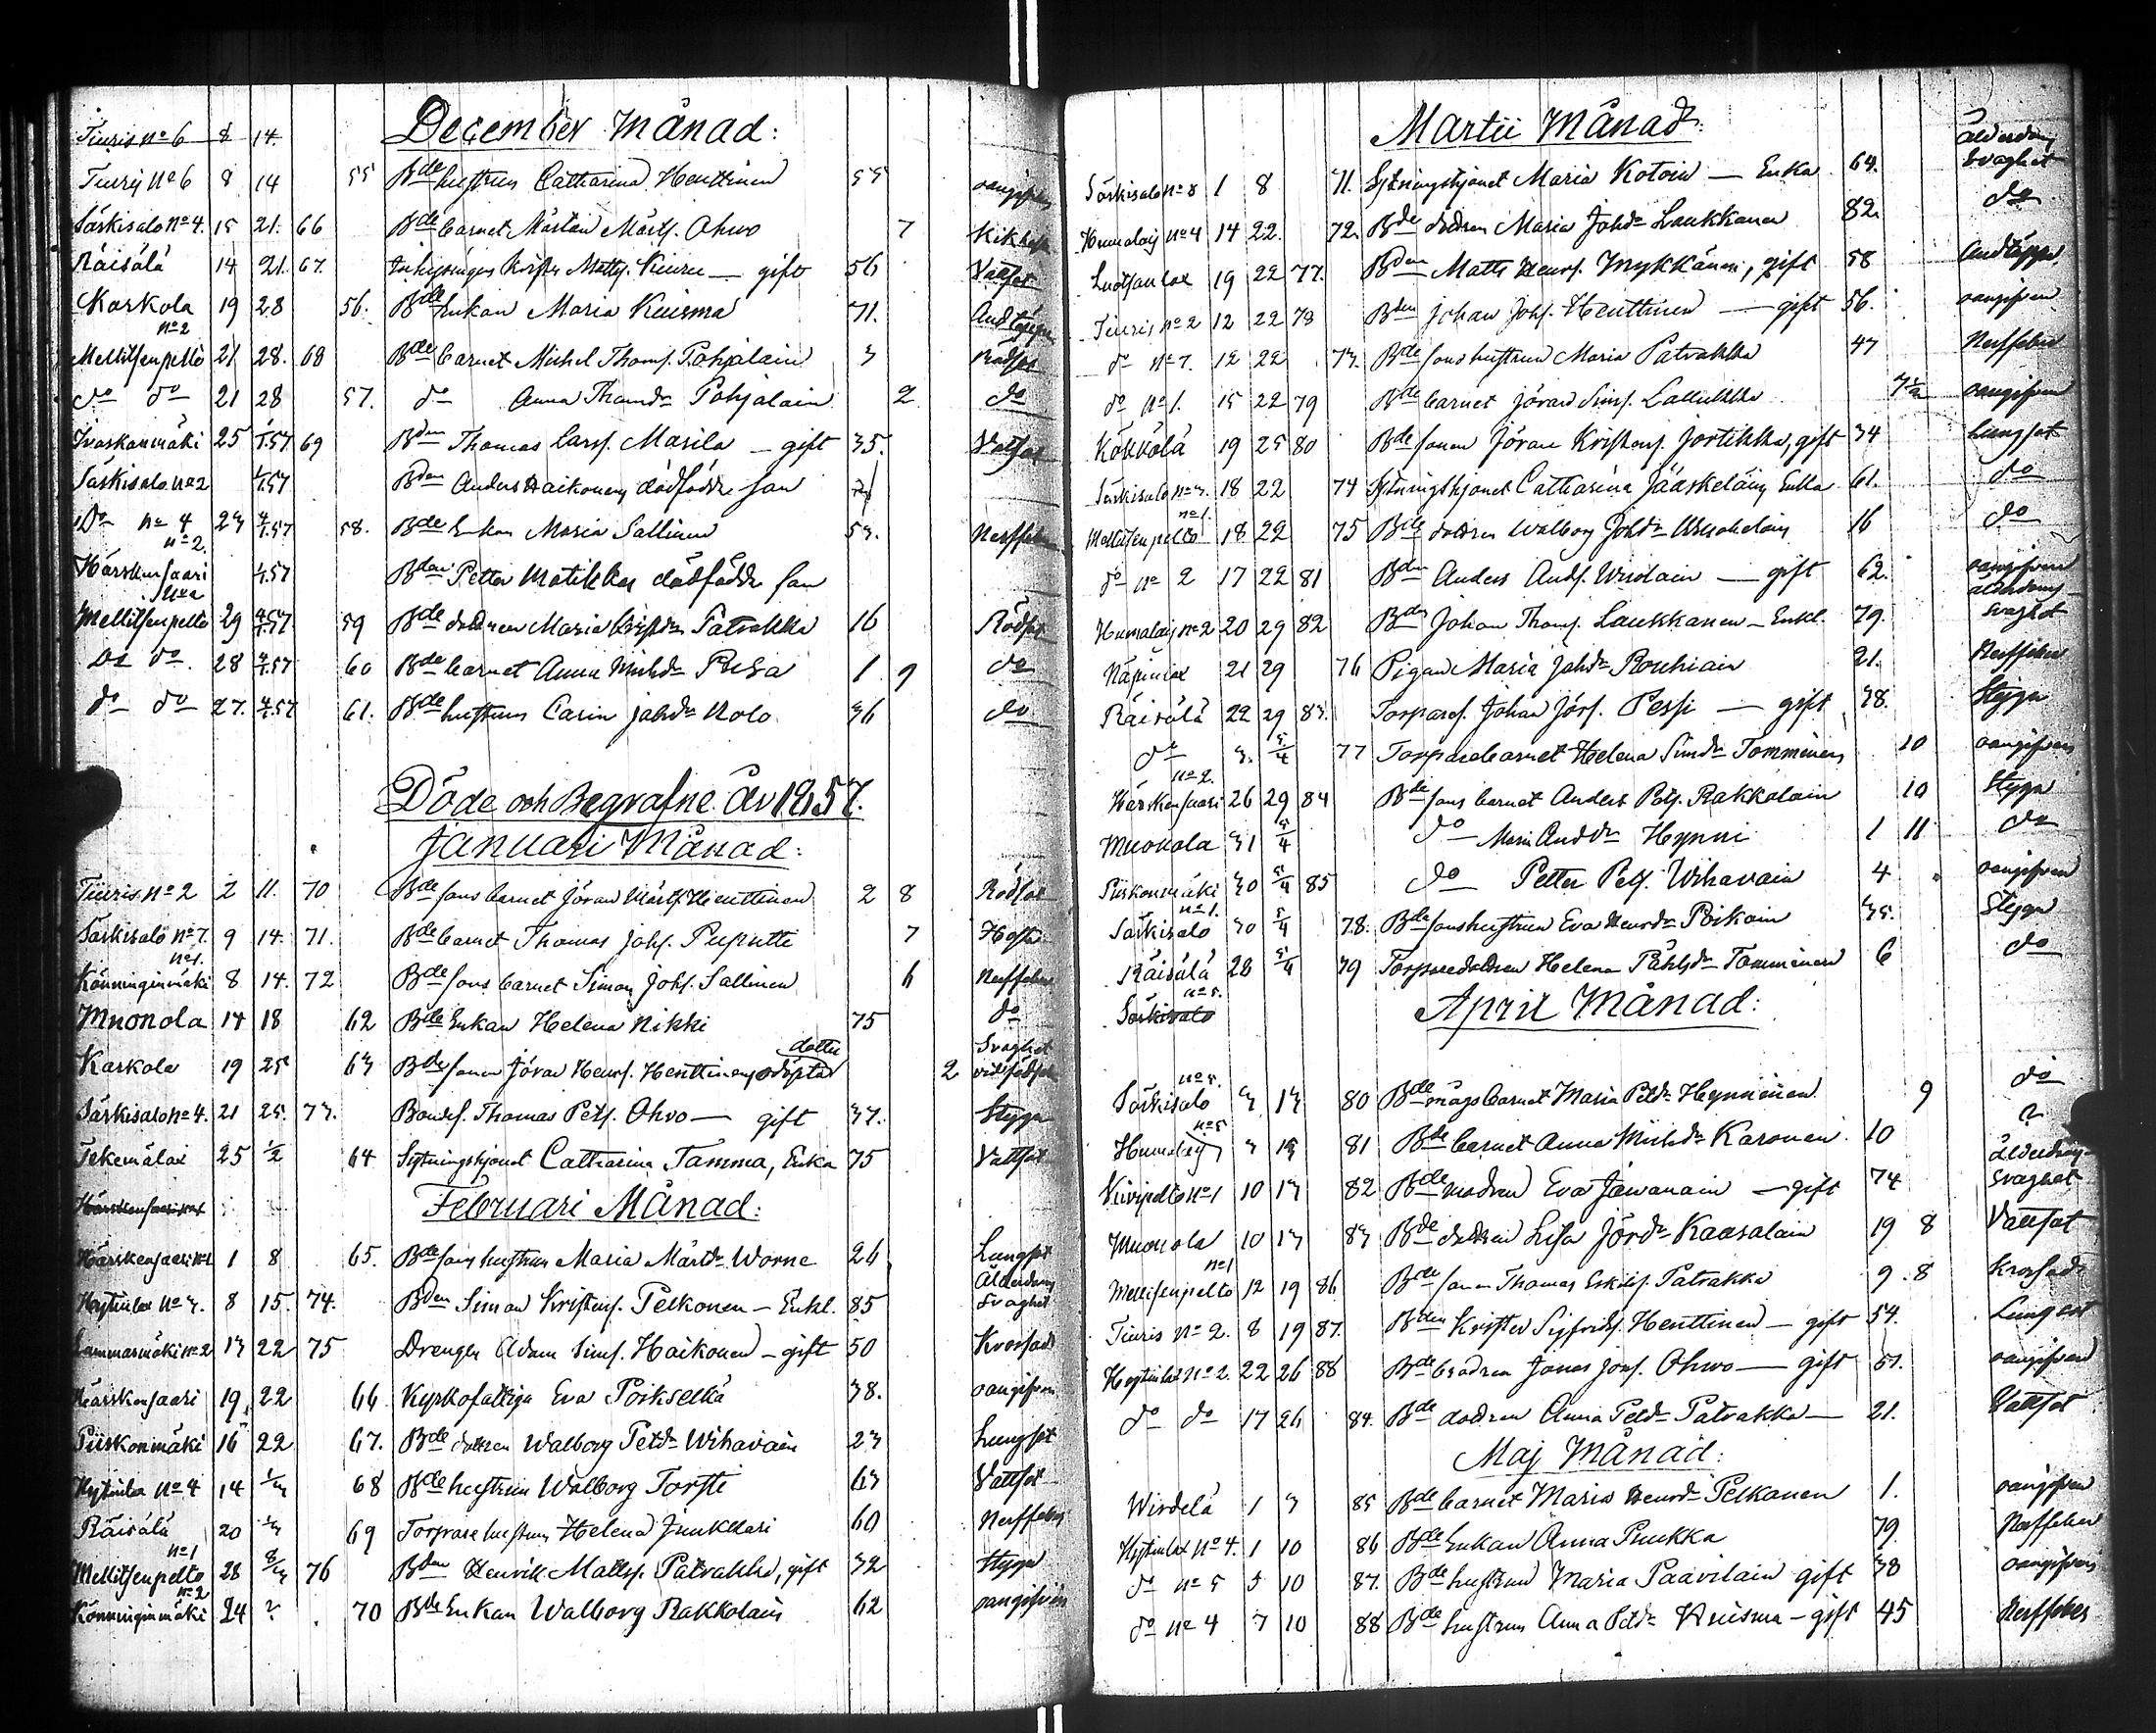 December Månad:
Tiuris No 6 8 14.
Tiurij No 6 8 14 55 Bde hustrun Catharina Henttinen 55 oangifven
Särkisalo No 4. 15 21. 66 Bde barnet Mårten Mårtf. Ohvo 7 Kikhosta
Räisälä 14 21. 67. Inhysingen Krister Matts. Kiuru — gift 56 Vattsot
Karkola No 2 19 28 56. Bde Enkan Maria Kuisma 71. Andtäppa
Mellitsenpelto 21 28. 68 Bde barnet Michel Thoms. Pohjalain 3 Rödsot
do do 21 28 57. do Anna Thomdr Pohjalain 2 do
Ivaskanmäki 25 1/1.57 69 Bden Thomas Larsf. Marila — gift 35. Vattsot
Särkisalo No 2 1/1.57 Bden Anders Haikonens dödfödde son
Do No 4 23 4/1.57 58. Bde Enkan Maria Sallinen 53. Nerffeber
Härskensaari No 2. 4/1.57 Bden Petter Matikkas dödfödde son
Mellitsenpelto No 2 29 4/1.57 59 Bde dottren Maria Kristdr Patrakka 16 Rödsot
do do. 28 4/1.57 60 Bde barnet Anna Michdr Pusa 1 9 do
do do 27. 4/1.57 61. Bde hustrun Carin Johdr Kolo 36 do
Döde och Begrafne År 1857.
Januari Månad:
Tiuris No 2 2 11. 70 Bde sons barnet Jöran Mårtf. Henttinen 2 8 Rödsot
Särkisalo No 7. 9 14. 71. Bde barnet Thomas Johf. Puputti 7 Hosta
Könninginmäki No 1. 8 14. 72 Bde sons barnet Simon Johf. Sallinen 6 Nerffeber
Muonola 14 18 62 Bde Enkan Helena Nikki 75 do
Karkola 19 25 63 Bde sonen Jöran Henrf. Henttinens odöpta dotter 2 Svaghet vid födseln
Särkisalo No 4. 21 25. 73. Bondef. Thomas Petf. Ohvo — gift 37. Stygn
Tekemälax 25 1/2 64 Sytningshjonet Catharina Tamma, Enka 75 Vattsot
Februari Månad:
Härskensaari No 1 1 8 65. Bde sons hustrun Maria Mårtdr Worne 26 Lungsot
Hytinlax No 3. 8 15. 74. Bden Simon Kristerf. Pelkonen — Enkl. 85 Ålderdoms Svaghet
Lammasmäki No 2 13 22 75 Drengen Adam Simf. Haikonen — gift 50 Krossad
Härskensaari 19 22 66 Kyrkofattiga Eva Poikselkä 38. oangifven
Piiskonmäki 16 22 67. Bde dottren Walborg Petdr Wihavain 23 Lungsot
Hytinlax No 4 14 1/3 68 Bde hustrun Walborg Torsti 63 Vattsot
Räisälä 20 1/3 69 Torpare hustrun Helena Junkkari 60 Nerffeber
Mellitsenpelto No 1 28 8/3 76 Bden Henrik Mattsf. Patrakka, gift 32 Stygn
Könninginmäki No 2 24 ? 70 Bde Enkan Walborg Rakkolain 62 oangifven
Martii Månad:
Särkisalo No 8 1 8 71. Sytningshjonet Maria Kotoin — Enka 64. Ålderdoms Svaghet
Humalaij No 4 14 22. 72. Bde dottren Maria Johdr Laukkanen 82 do
19 22 77. Bden Matts Henrf. Mykkänen, gift 58 Andtäppa
Tiuris No 2 12 22 78 Bden Johan Johf. Henttinen — gift 56. oangifven
do No 7. 12 22 73. Bde sons hustrun Maria Patrakka 47 Nerffeber
do No 1. 15 22 79 Bde barnet Jöran Simf. Lallukka 7 1/2 oangifven
Kökkölä 19 25 80 Bde sonen Jöran Kristerf. Jortikka, gift 34 Lungsot
Särkisalo No 3. 18 22 74 Sytningshjonet Catharina Jääskeläin Enka 61. do
Mellitsenpelto No 1. 18 22 75 Bde dottren Walborg Johdr 16 do
do No 2 17 22 81 Bden Anders Andf. Wirolain — gift 62. oangifven
Humalaij No 2 20 29 82 Bden Johan Thomf. Laukkanen — Enkl. 79. ålderdoms svaghet
Näpinlax 21 29 76 Pigan Maria Johdr Rouhiain 21. Nerffeber
Räisälä 22 29 83. Torparef. Johan Jörf. Pessi — gift 38. Stygn
do 3. 5/4 77 Torparebarnet Helena Simdr Tomminen 10 oangifven
Härskensaari No 2. 26 29 84 Bde sons barnet Anders Petf. Rakkolain 10 Stygn
Muonola 31 5/4 do Maria Anddr Hynni 1 11 do
Piiskonmäki 30 5/4 85 do Petter Petf. Wihavain 4 oangifven
Särkisalo No 1. 30 5/4 78. Bde sonshustrun Eva Henrdr Poikain 35. Stygn
Räisälä 28 5/4 79 Torparedottren Helena Påhlsdr Tomminen 6 do
Särkisalo No 5.
April Månad:
Särkisalo No 5. 3 13 80 Bde mågs barnet Maria Petdr Hynninen 9 do
Humalaij No 5 3 13 81 Bde barnet Anna Michdr Karonen 10 ?
Kivipelto No 1 10 13 82 Bde modren Eva Jawanain — gift 74 ålderdoms Svaghet
Muonola 10 13 83 Bde dottren Lisa Jördr Kaasalain 19 8 Vattsot
Mellitsenpelto No 1 12 19 86 Bde sonen Thomas Eskilsf. Patrakka 9 8 Krossad
Tiuris No 2. 8 19 87. Bden Krister Sigfridsf. Henttinen — gift 54. Lungsot
Hytinlax No 2. 22 26 88 Bde brodren Jonas Jonsf. Ohvo — gift 51. oangifven
do do 17 26 84. Bde dottren Anna Petdr Patrakka — 21. Vattsot
Maj Månad:
Wirdelä 1 3 85 Bde barnet Maria Henrdr Pelkonen 1. oangifven
Hytinlax No 4. 1 10 86 Bde Enkan Anna Pukka 79. Nerffeber
do No 5 5 10 87. Bde hustrun Maria Paavilain gift 38 oangifven
do No 4 7 10 88 Bde hustrun Anna Petdr Kuisma — gift 45 Nerffeber